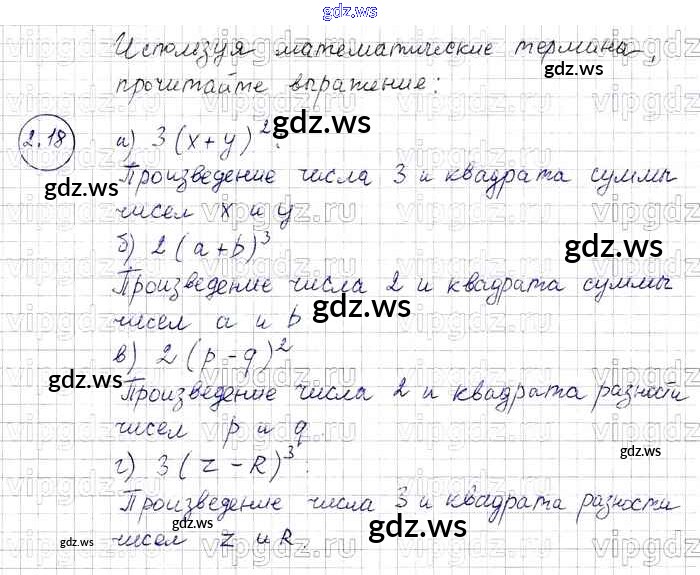 gdz.ws
Используя математические термина,
прочитайте выражение:
2.18
а) 3(x+y)².
Произведение числа 3 и квадрата суммы
чисел x и y
б) 2(a+b)³
Произведение числа 2 и квадрата суммы
чисел a и b
в) 2(p-q)²
Произведение числа 2 и квадрата разности
чисел p и q.
г) 3(z-R)³.
Произведение числа 3 и квадрата разности
чисел z и R.